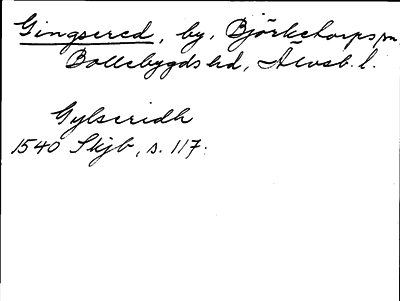 Gingsered, by, Björketorps sn,
Bollebygds hd, Älvsb. l.
Gylseridh
1540 Skjb, s. 117.